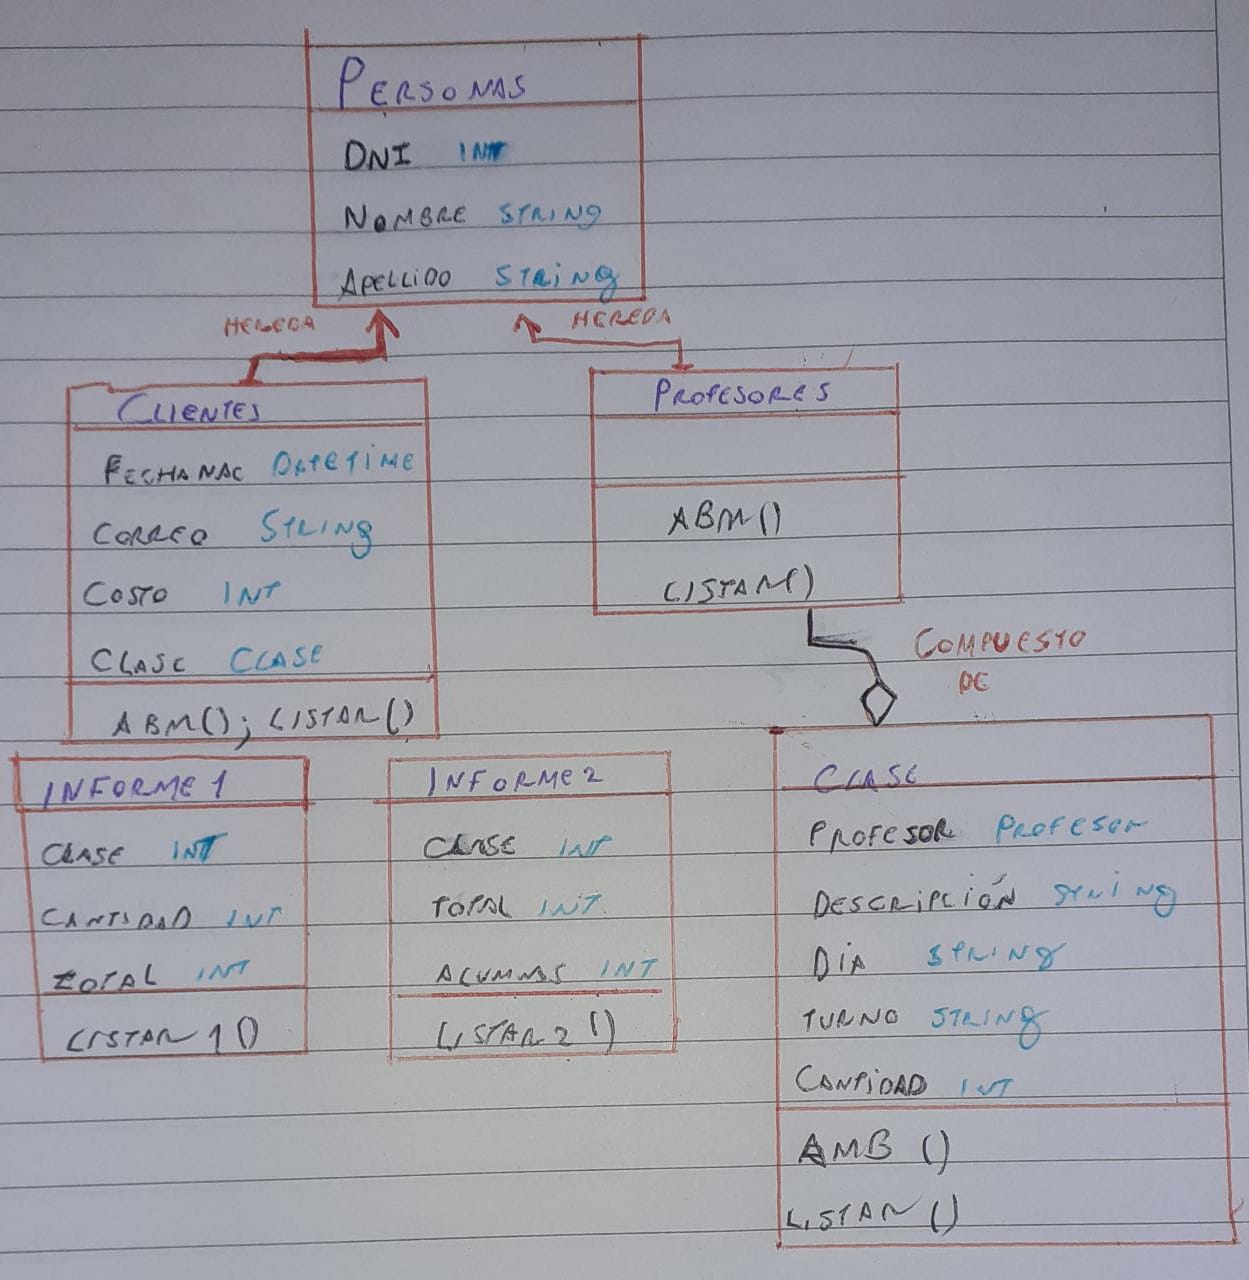 PERSONAS
DNI INT
NOMBRE STRING
APELLIDO STRING
HEREDA
HEREDA
CLIENTES
FECHANAC DATETIME
CORREO STRING
COSTO INT
CLASE CLASE
ABM(); LISTAR()
PROFESORES
ABM()
LISTAR()
COMPUESTO
DE
INFORME 1
CLASE INT
CANTIDAD INT
TOTAL INT
LISTAR 1()
INFORME 2
CLASE INT
TOTAL INT
ALUMNOS INT
LISTAR 2()
CLASE
PROFESOR PROFESOR
DESCRIPCIÓN STRING
DÍA STRING
TURNO STRING
CANTIDAD INT
AMB ()
LISTAR ()